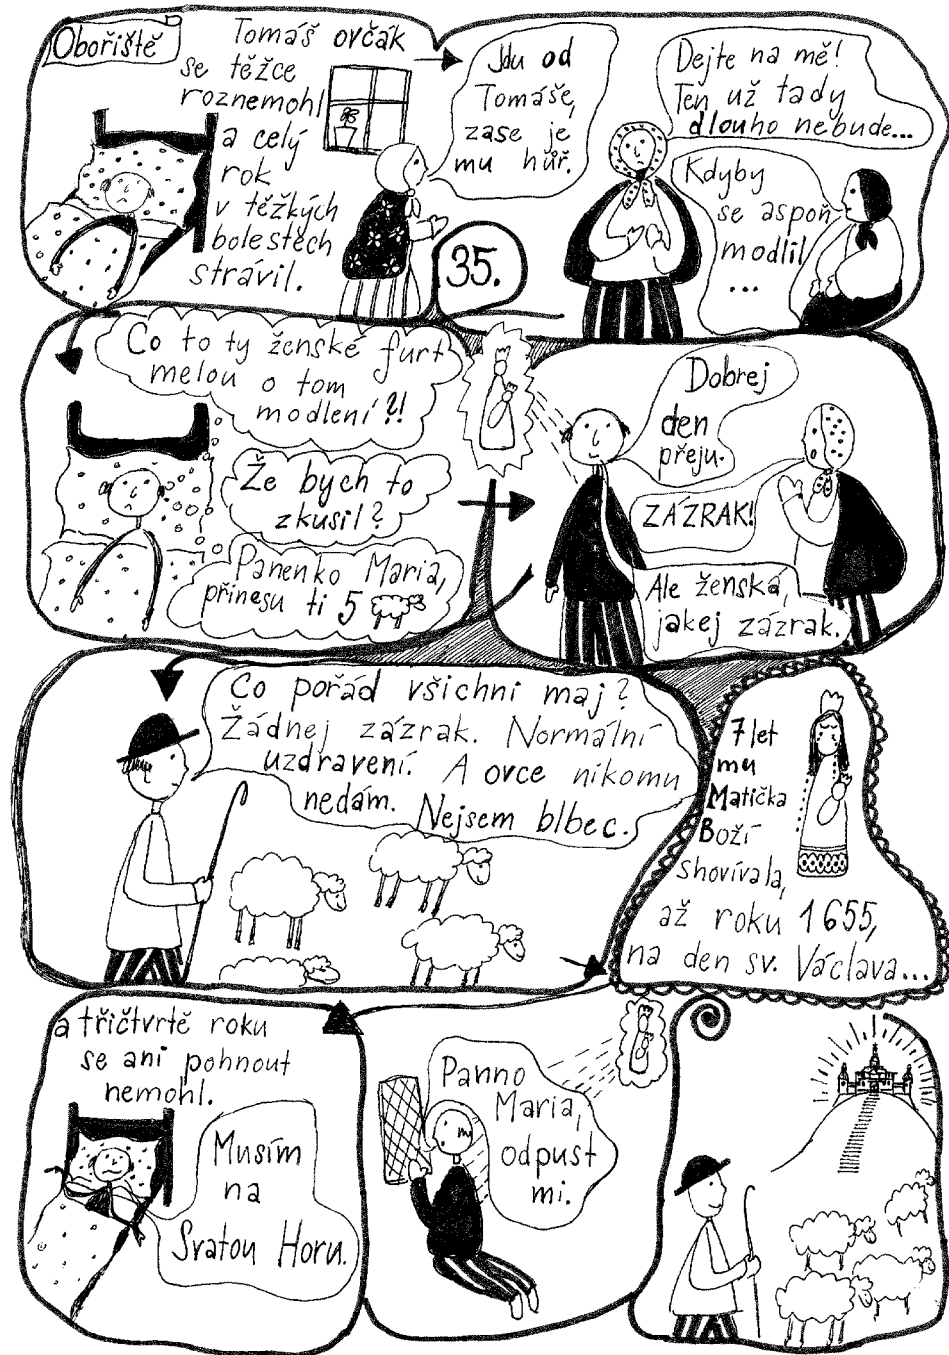 Obořiště
Tomáš ovčák
se těžce
roznemohl
a celý
rok
v těžkých
bolestech
strávil.
Jdu od
Tomáše,
zase je
mu hůř.
35.
Dejte na mě!
Ten už tady
dlouho nebude...
Kdyby
se aspoň
modlil
...
Co to ty ženské furt
melou o tom
modlení?!
Že bych to
zkusil?
Panenko Maria,
přinesu ti 5
Dobrej
den
přeju.
ZÁZRAK!
Ale ženská,
jakej zázrak.
Co pořád všichni maj?
Žádnej zázrak. Normální
uzdravení. A ovce nikomu
nedám. Nejsem blbec.
7 let
mu
Matička
Boží
shovívala,
až roku 1655,
na den sv. Václava...
a třičtvrtě roku
se ani pohnout
nemohl.
Musím
na
Svatou Horu.
Panno
Maria,
odpusť
mi.